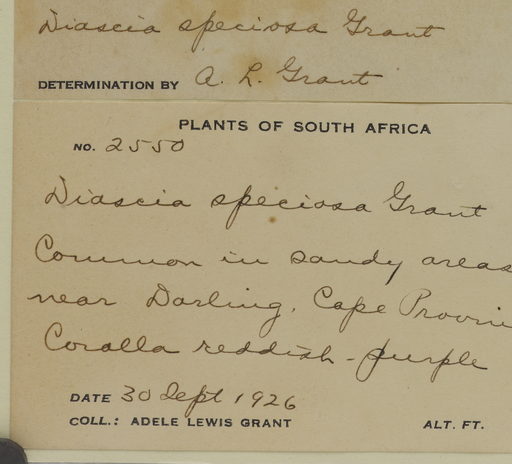 Diascia speciosa Grant
DETERMINATION BY A. L. Grant
PLANTS OF SOUTH AFRICA
NO. 2550
Diascia speciosa Grant
Common in sandy areas
near Darling, Cape Provin
Coralla reddish-purple
DATE 30 Sept 1926
COLL.: ADELE LEWIS GRANT ALT. FT.